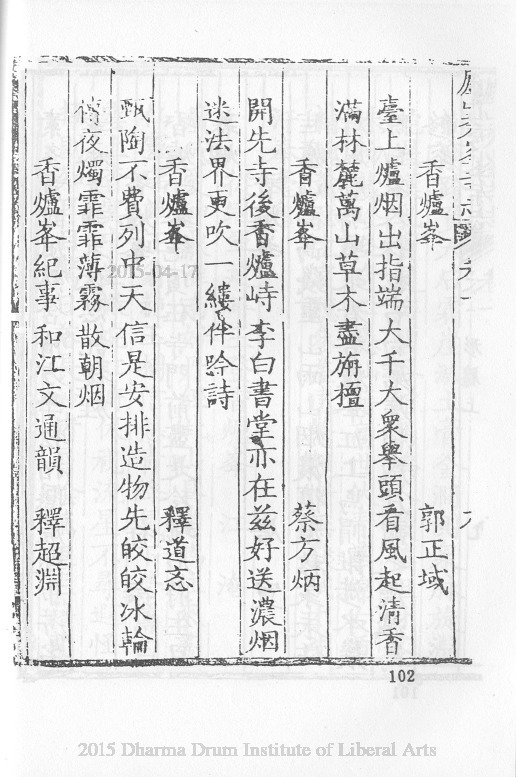 香爐峯 郭正域
臺上爐烟出指端大千大衆舉頭看風起清香
滿林麓萬山草木盡旃檀
香爐峯 蔡方炳
開先寺後香爐峙李白書堂亦在兹好送濃烟
迷法界更吹一縷伴唫詩
香爐峯 釋道忞
甄陶不費列中天信是安排造物先皎皎冰輪
夜燭霏霏薄霧散朝烟
香爐峯紀事 和江文通韻 釋超淵
102
2015-04-17
2015 Dharma Drum Institute of Liberal Arts